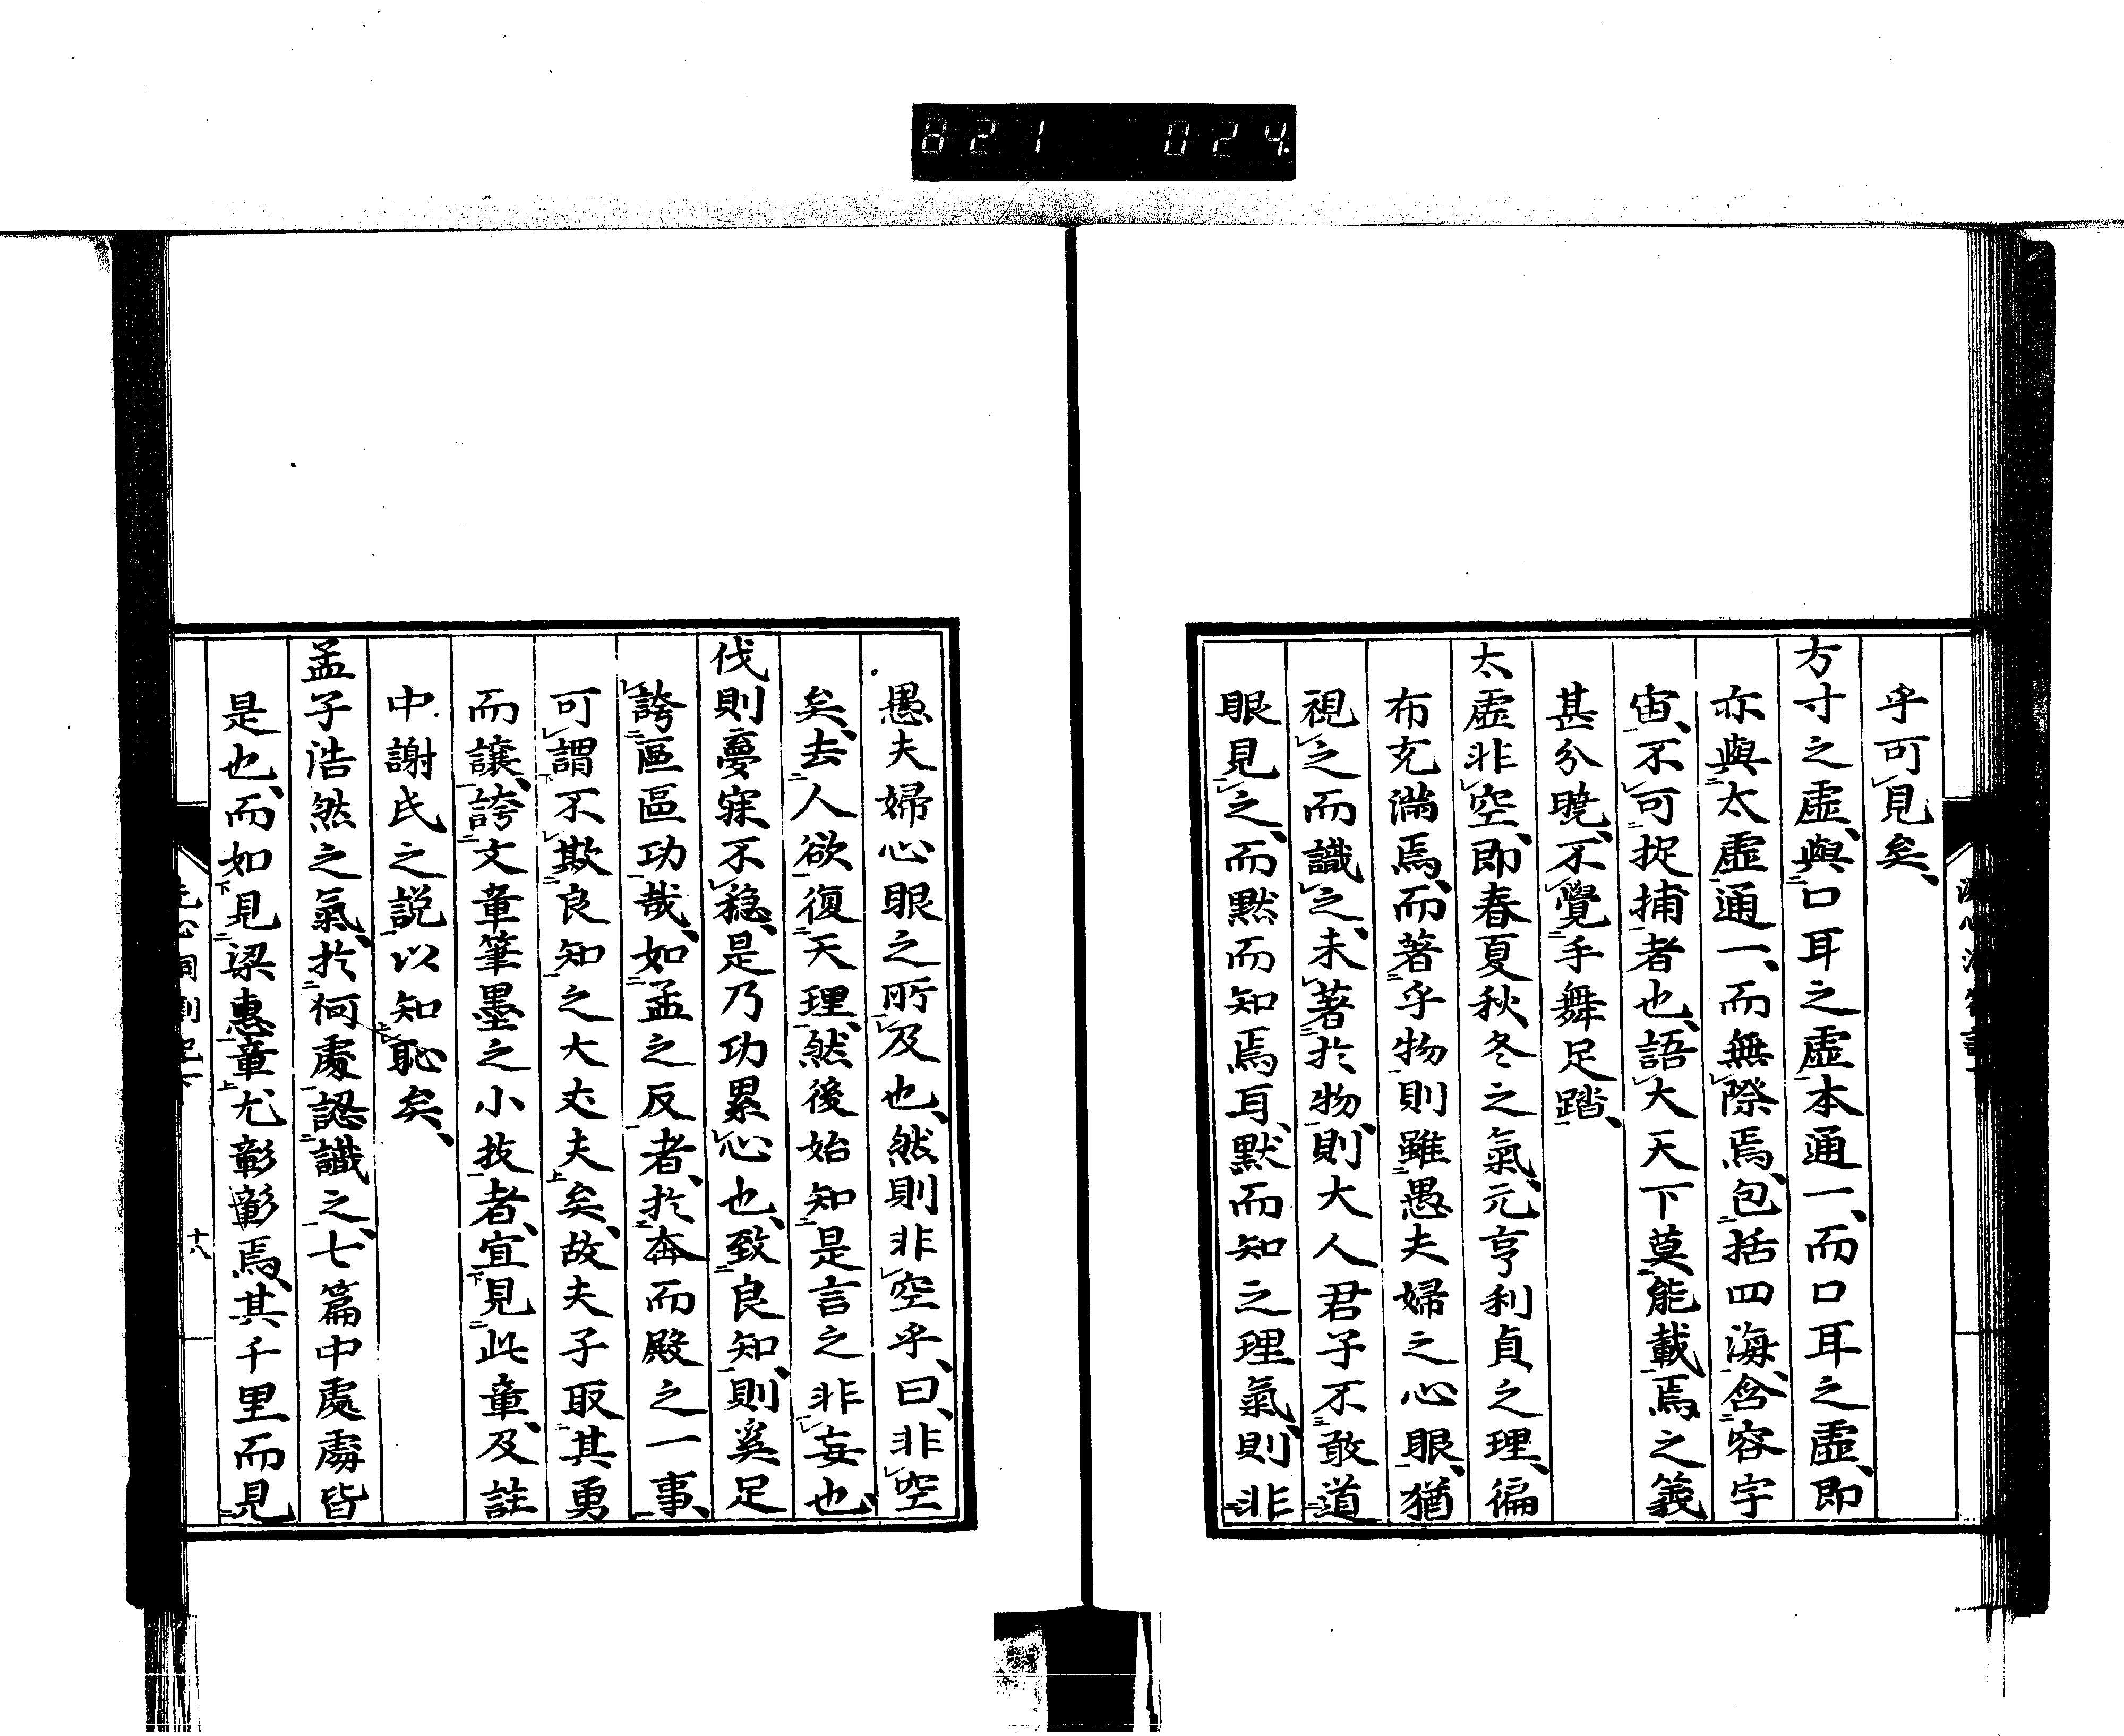 821 024
乎可見矣、
方寸之虛、與口耳之虛本通一、而口耳之虛、卽
亦與太虛通一、而無際焉、包括四海、含容宇
宙、不可捉捕者也、語大天下莫能載焉之義
甚分曉、不覺手舞足踏、
太虛非空、卽春夏秋冬之氣、元亨利貞之理、徧
布充滿焉、而著乎物則雖愚夫婦之心眼、猶
視之而識之、未著於物、則大人君子不敢道
眼見之、而默而知焉耳、默而知之理氣、則非
愚夫婦心眼之所及也、然則非空乎、曰、非空
矣、去人欲復天理、然後始知是言之非妄也、
伐則夢寐不穩、是乃功累心也、致良知、則奚足
誇區區功哉、如孟之反者、於奔而殿之一事、
可謂不欺良知之大丈夫矣、故夫子取其勇
而讓、誇文章筆墨之小技者、宜見此章、及註
中謝氏之説以知恥矣、
孟子浩然之氣、於何處認識之、七篇中處處皆
是也、而如見梁惠章尤彰彰焉、其千里而見
十八